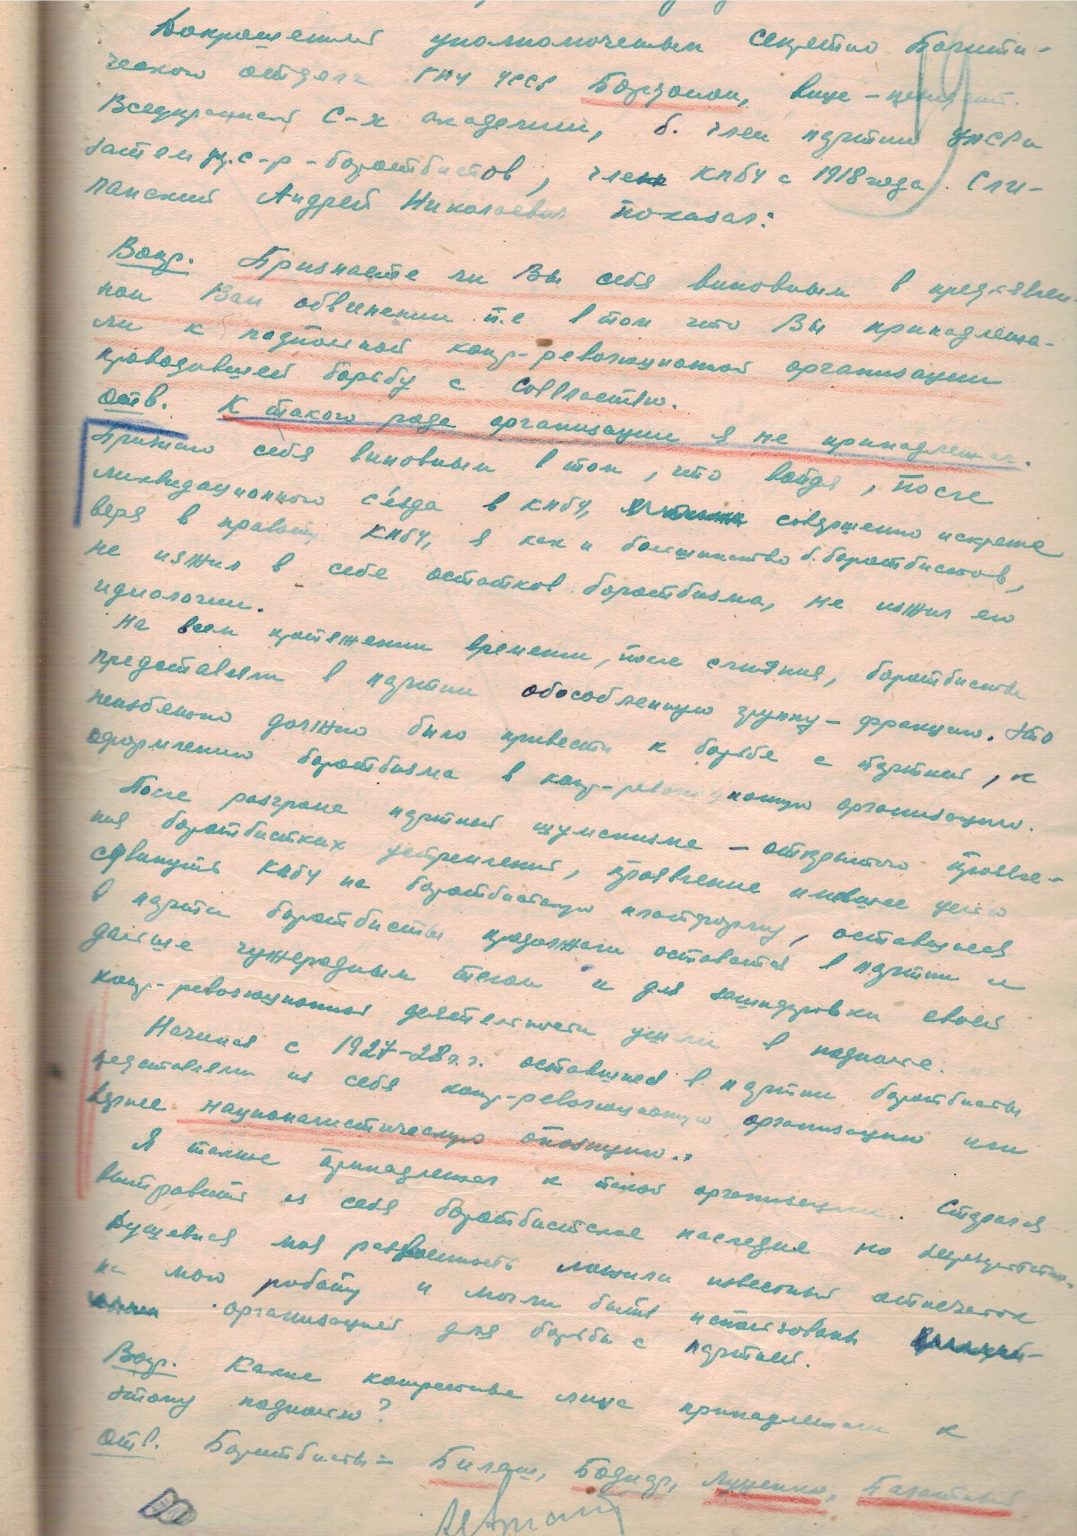 Допрошенный уполномоченным секретно политического
отдела ГПУ УССР Борзовым, вице-
Всеукраинской С-х академии, б. член партии УПСРи
затем у.с-р-боротьбистов, член КПбУ с 1918 года Сли-
панский Андрей Николаевич показал:
Вопр. Признаете ли Вы себя виновным в предъявлен-
ном Вам обвинении т.е в том что Вы принадлежа-
ли к подпольной контр-революционной организации
проводившей борьбу с Соввластью.
Отв. К такого рода организации я не принадлежал.
Признаю себя виновным в том, что войдя, после
ликвидационного с'езда в КПбУ, совершенно искренне
веря в правоту КПбУ, я как и большинство б. боротьбистов,
не изжил в себе остатков боротьбизма, не изжил его
идиологии.
На всем протяжении времени, после слияния, боротьбисты
представляли в партии обособленную группу-фракцию. Это
неизбежно должно было привести к борьбе с партией, к
оформлению боротьбизма в контр-революционную организацию.
После разгрома партией шумскизма - открытого проявле-
ния боротьбистких устремлений, проявление имевшее целью
сдвинуть КПбУ на боротьбистскую платформу, оставшиеся
в партии боротьбисты продолжали оставаться в партии и
дальше чужеродным телом и для зашифровки своей
контр-революционной деятельности ушли в подполье.
Начиная с 1927-28 г.г. оставшиеся в партии боротьбисты
представляли из себя контр-революционную организацию или
вернее националистическую опозицию.
Я также принадлежал к такой организации. Старался
вытравить из себя боротьбистское наследие но
Душевная моя раздвоенность ложила известный отпечаток
на мою работу и могли быть использованы
организацией для борьбы с партией.
Вопр. Какие конкретные лица принадлежали к
этому подполью?
Отв. Боротьбисты - Билаш, Бодидр,